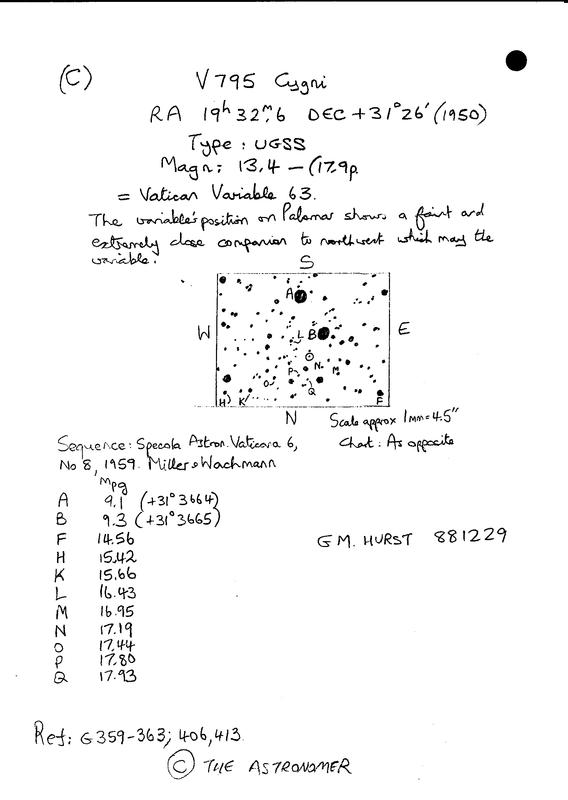 (C)
V795 Cygni
RA 19h 32m.6 DEC +31° 26' (1950)
Type: UGSS
Magn: 13.4 – (17.9p
= Vatican Variable 63.
The variable's position on Palomar shows a faint and
extremely close companion to northwest which may the
variable.
S
A
W
L B
E
N
M
P
O
Q
H K
F
N
Scale approx 1mm = 4.5"
Chart: As opposite
Sequence: Specola Astron. Vaticana 6,
No 8, 1959. Miller & Wachmann
Mpg
A 9.1 (+31° 3664)
B 9.3 (+31° 3665)
F 14.56
H 15.42
K 15.66
L 16.43
M 16.95
N 17.19
O 17.44
P 17.80
Q 17.93
GM. HURST 881229
Ref: G359-363; 406,413
© THE ASTRONOMER